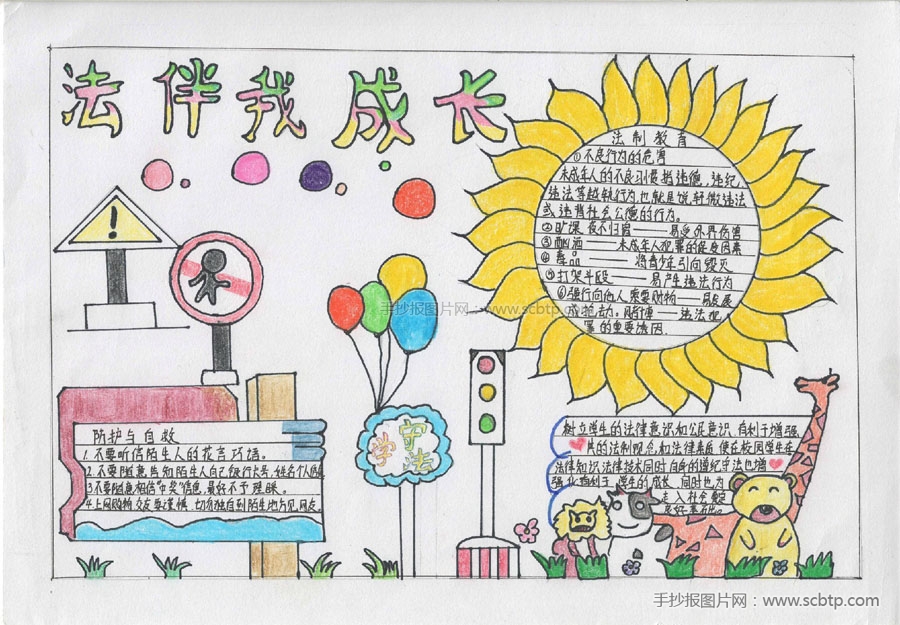 法伴我成长
法制教育
①不良行为的危害
未成年人的不良习惯指违德、违纪、
违法等越轨行为,也就是说轻微违法
或违背社会公德的行为。
②旷课、夜不归宿——易受外界伤害
③酗酒——未成年人犯罪的促度因素
④毒品——将青少年引向毁灭
⑤打架斗殴——易产生违法行为
⑥强行向他人索要财物——易发展
成抢劫。赌博——违法犯
罪的重要诱因
手抄报图片网:www.scbtp.com
防护与自救
1.不要听信陌生人的花言巧语。
2.不要随意告知陌生人自己银行卡号,姓名个人信息
3.不要随意相信“中奖”信息,最好不予理睬。
4.上网购物交友要谨慎,切勿独自到陌生地方见网友
学守法
树立学生的法律意识和公民意识 有利于增强
其的法制观念和法律素质 使在校同学生在
法律知识法律技术同时 自身的遵纪守法也增
强化有利于 学生的成长 同时也为
走入社会奠定
良好基础。
手抄报图片网:www.scbtp.com